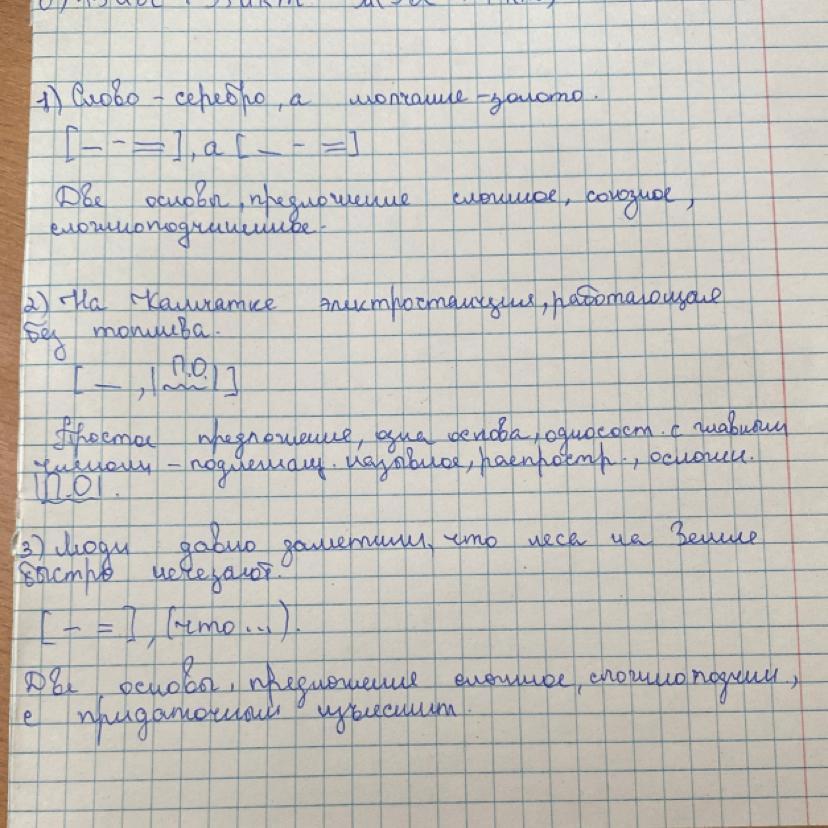 1) Слово – серебро, а молчание – золото.
[— – =], а [— – =]
Две основы, предложение сложное, союзное,
сложноподчиненное.
2) На Камчатке электростанция, работающая
без топлива.
[—, |П.О.|]
Простое предложение, одна основа, односост. с главным
членом – подлежащ. назывное, распростр., осложн.
|П.О|.
3) Люди давно заметили, что леса на Земле
быстро исчезают.
[– =], (что...).
Две основы, предложение сложное, сложноподчин,
с придаточным изъяснит.